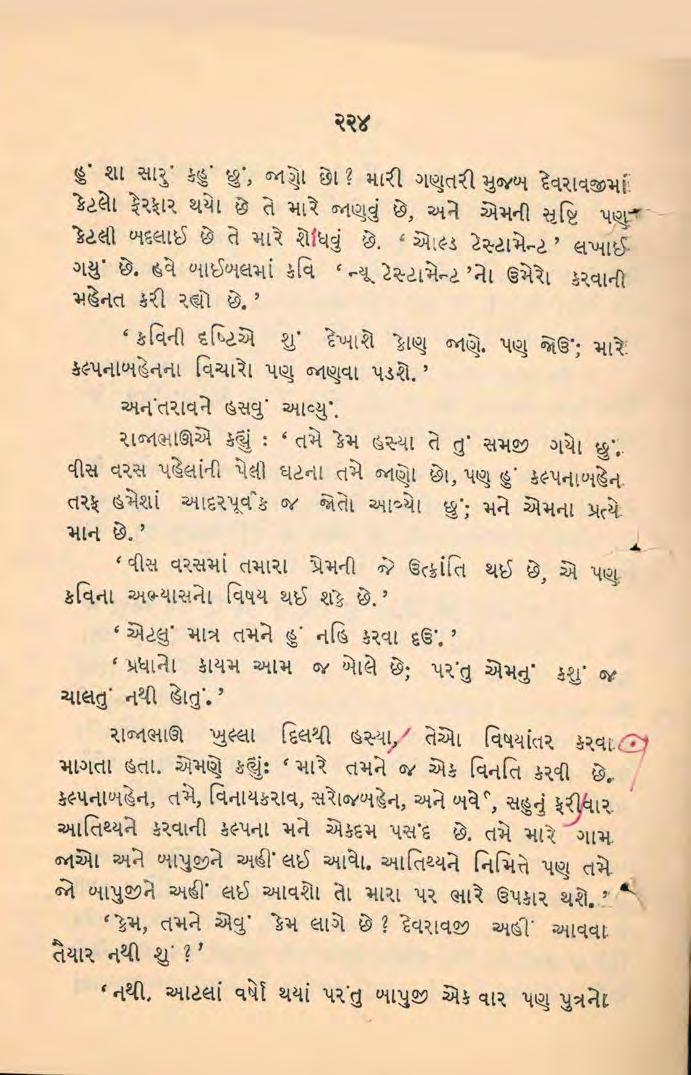 ૨૨૪
હું શા સારું કહું છું, જાણો છો? મારી ગણતરી મુજબ દેવરાવજીમાં
કેટલો ફેરફાર થયો છે તે મારે જાણવું છે, અને એમની સૃષ્ટિ પણ
કેટલી બદલાઈ છે તે મારે શોધવું છે. ‘ ઓલ્ડ ટેસ્ટામેન્ટ ’ લખાઈ
ગયું છે. હવે બાઈબલમાં કવિ ‘ ન્યૂ ટેસ્ટામેન્ટ ’નો ઉમેરો કરવાની
મહેનત કરી રહ્યો છે. ’
‘ કવિની દૃષ્ટિએ શું દેખાશે કોણ જાણે. પણ જોઉં; મારે
કલ્પનાબહેનના વિચારો પણ જાણવા પડશે. ’
અનંતરાવને હસવું આવ્યું.
રાજાભાઊએ કહ્યું : ‘ તમે કેમ હસ્યા તે તું સમજી ગયો છું.
વીસ વરસ પહેલાંની પેલી ઘટના તમે જાણો છો, પણ હું કલ્પનાબહેન
તરફ હમેશાં આદરપૂર્વક જ જોતો આવ્યો છું; મને એમના પ્રત્યે
માન છે. ’
‘ વીસ વરસમાં તમારા પ્રેમની જે ઉત્ક્રાંતિ થઈ છે, એ પણ
કવિના અભ્યાસનો વિષય થઈ શકે છે. ’
‘ એટલું માત્ર તમને હું નહિ કરવા દઉં. ’
‘ પ્રધાનો કાયમ આમ જ બોલે છે; પરંતુ એમનું કશું જ
ચાલતું નથી હોતું. ’
રાજાભાઊ ખુલ્લા દિલથી હસ્યા, તેઓ વિષયાંતર કરવા
માગતા હતા. એમણે કહ્યું: ‘ મારે તમને જ એક વિનતિ કરવી છે.
કલ્પનાબહેન, તમે, વિનાયકરાવ, સરોજબહેન, અને બર્વે, સહુનું ફરીવાર
આતિથ્યને કરવાની કલ્પના મને એકદમ પસંદ છે. તમે મારે ગામ
જાઓ અને બાપુજીને અહીં લઈ આવો. આતિથ્યને નિમિત્તે પણ તમે
જો બાપુજીને અહીં લઈ આવશો તો મારા પર ભારે ઉપકાર થશે. ’
‘ કેમ, તમને એવું કેમ લાગે છે ? દેવરાવજી અહીં આવવા
તૈયાર નથી શું ? ’
‘ નથી. આટલાં વર્ષો થયાં પરંતુ બાપુજી એક વાર પણ પુત્રનો